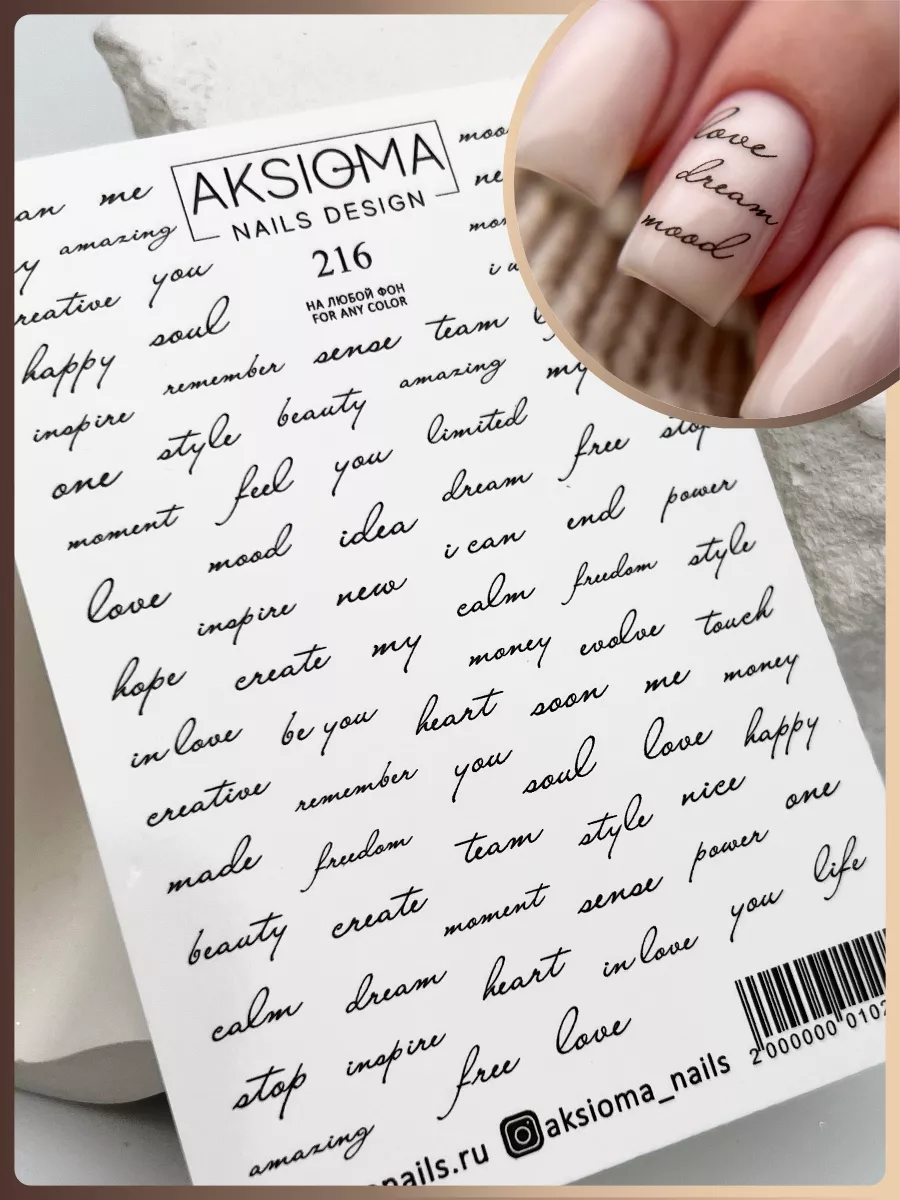 me
AKSIOMA
NAILS DESIGN
216
НА ЛЮБОЙ ФОН
FOR ANY COLOR
amazing
you
happy soul
inspire remember sense team
one style beauty amazing my
moment feel you limited
love mood idea dream free stop
inspire new i can end power
hope create my calm freedom style
in love be you money evolve touch
creative remember heart soon me money
made freedom you soul love happy
beauty create team style nice
calm dream moment sense power one
stop inspire heart in love you life
amazing free love
nails.ru @aksioma_nails
2 000000 0102
love
dream
mood